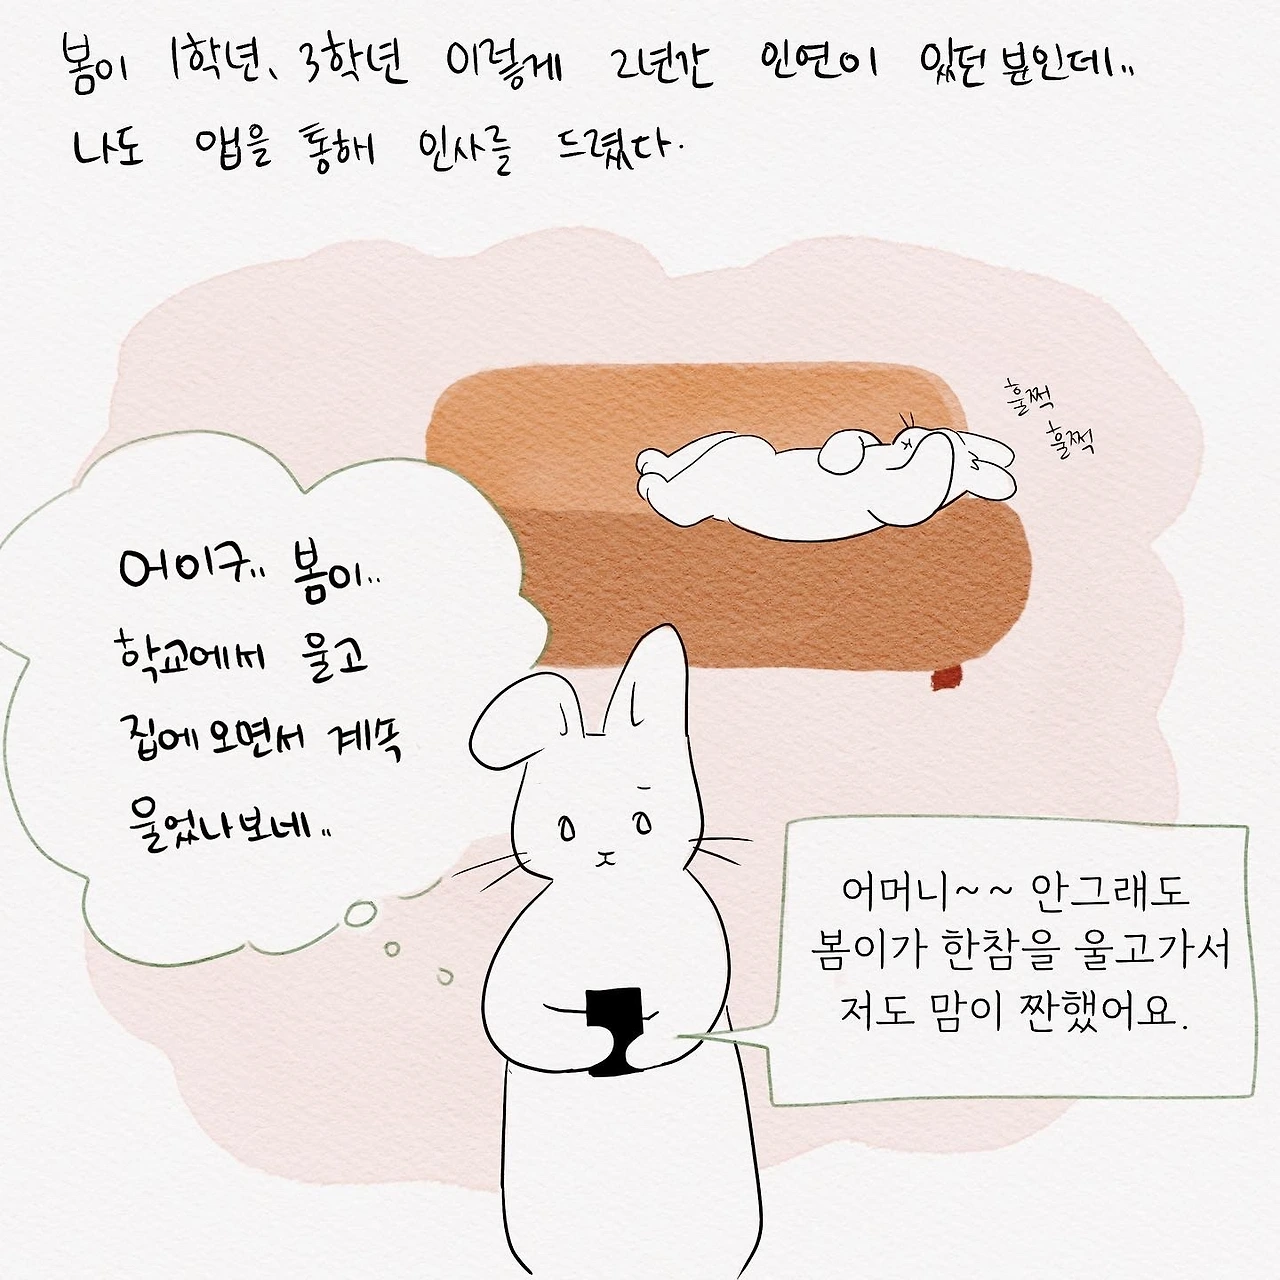 봄이 1학년、3학년 이렇게 2년간 인연이 있던 분인데..
나도 앱을 통해 인사를 드렸다.
훌쩍
훌쩍
어이구.. 봄이..
학교에서 울고
집에 오면서 계속
울었나보네..
어머니~~ 안그래도
봄이가 한참을 울고가서
저도 맘이 짠했어요.